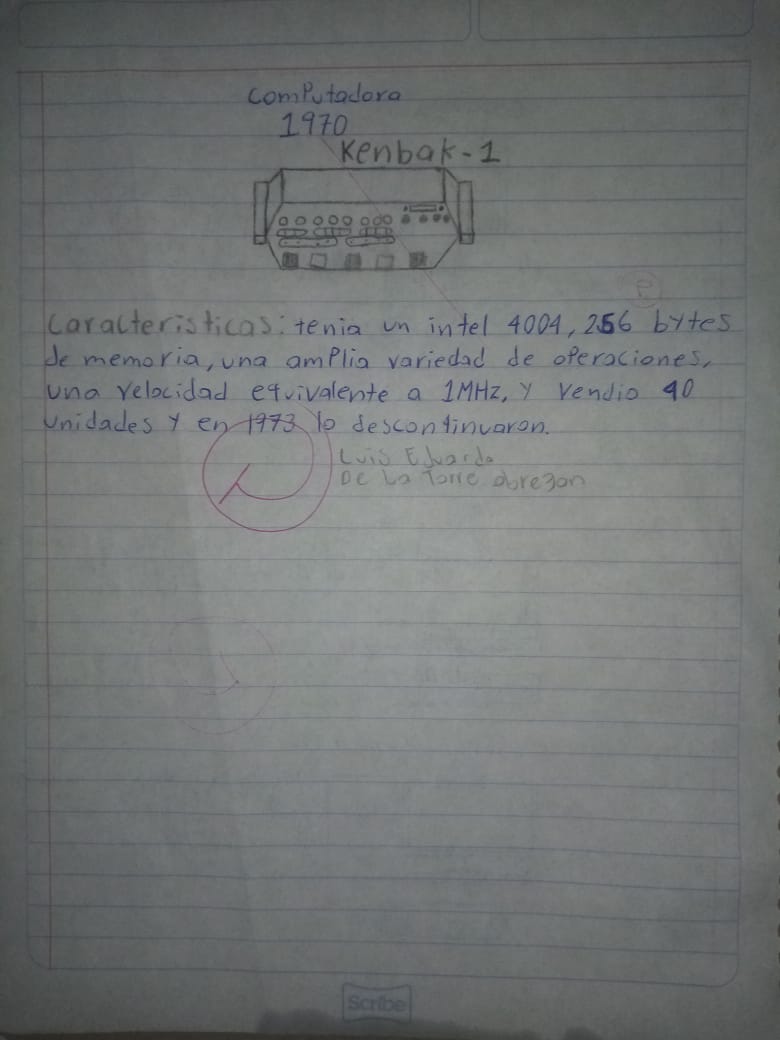 Computadora
1970
Kenbak-1
Caracteristicas: tenia un intel 4004, 256 bytes
de memoria, una amplia variedad de operaciones,
una velocidad equivalente a 1MHz, y vendio 40
unidades y en 1973 lo descontinuaron.
Luis Eduardo
De La Torre obregon
Scribe